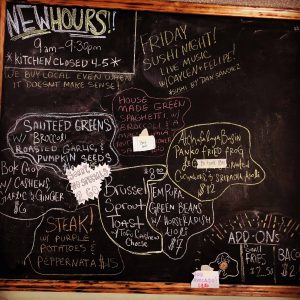 NEW HOURS!!
9am-9:30pm
*KITCHEN CLOSED 4-5*
WE BUY LOCAL EVEN WHEN
IT DOESNT MAKE SENSE!
FRIDAY
SUSHI NIGHT!
LIVE MUSIC
W/CAYLEN+FELIPE!
*SUSHI BY DAN SANCHEZ
HOUSE
MADE GREEN
SPAGHETTI W/
BROCCOLI &
SAUTEED GREENS
W/ BROCOLI
ROASTED GARLIC, &
PUMPKIN SEEDS
Atchafalaya Basin
PANKO FRIED FROG
& SRIRACHA AIOLI
$12
BOK CHOY
W/ CASHEWS
GARLIC &
GINGER
$6
BRUSSEL
SPROUT
TOAST
w/ Tofu Cashew
Cheese
$8.00
TEMPURA
GREEN BEANS
W/ HORSERADISH
AIOLI
$7
STEAK!
W/ PURPLE
POTATOES &
PEPPERNATA $15
ADD-ONs
Small
FRIES
$2.50
BACO
$2
AVOCADO